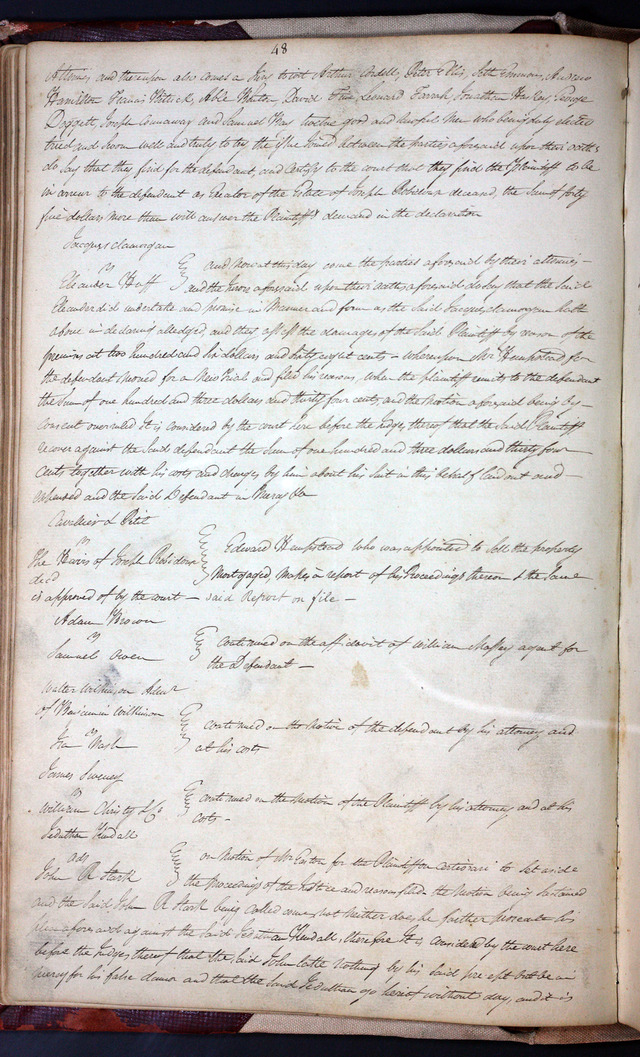 48
Attorney and thereupon also comes a Jury to wit Arthur Andell, Peter Ellis, Seth Emmons, Andrew
Hamilton Francis Hittick, Able Wheeler, David Fine, Leonard Farrah Jonathan Har Key, George
Doggett, Joseph Conaway and Samuel twelve good and lawful Men who being duly elected
tried and sworn well and truly to try the Issue Joined between the parties aforesaid upon their oaths
do say that they find for the defendant, and Certify to the court that they find the Plaintiff to be
in arrear to the defendant as Executor of the Estate of Joseph Robidoux deceased, the Sum of forty
five dollars more than will answer the Plaintiffs demand in the declaration
Jacques Clamorgan
vs
and now at this day come the parties aforesaid by their attornies
Eleander Hoff and the Jurors aforesaid upon their oaths aforesaid do say that the said
Eleander did undertake and promise in Manner and form as the said Jacques Clamorgan hath
above in declaring alledged, and they assess the damages of the said Plaintiff by reason of the
premises at two hundred and six dollars and sixty eight cents - whereupon Mr Hempstead for
the defendant moved for a New trial and files his reasons, when the plaintiff remits to the defendant
the Sum of one hundred and three dollars and thirty four cents, and the Motion aforesaid being by -
Consent overruled it is considered by the court here before the Judges thereof that the said Plaintiff
recover against the said defendant the Sum of one hundred and three dollars and thirty four
Cents together with his costs and charges by him about his suit in this behalf laid out and -
expensed and the said Defendant in Mercy &c
Cavellier & Petit
vs
The Heirs of Joseph Robidoux
decd
Edward Hempstead who was appointed to sell the property
Mortgaged, makes a report of his Proceedings thereon & the Same
is approved of by the court - said Report on file -
Adam Brown
vs
Samuel Owen
Continued on the affidavit of William Massey agent for
the Defendant -
Walter Wilkinson Admr
of Benjamin Wilkinson
vs
Ira Nash
Continued on the Motion of the defendant by his attorney and
at his costs
James Sweney
vs
William Christy & Co
Continued on the Motion of the Plaintiff by his attorney and at his
costs -
Jeduthan Kendall
ads
John R Stark
on Motion of Mr Easton for the Plaintiff on certiorari to set aside
the proceedings of the Justice and reasons filed the Motion being sustained
and the said John R Stark being called comes not neither does he farther prosecute his
plea aforesaid against the said Jeduthan Kendall, therefore it is considered by the court here
before the Judges thereof that the said John take nothing by his said precept but be in
mercy for his false clamor and that the said Jeduthan go hereof without day, and it is